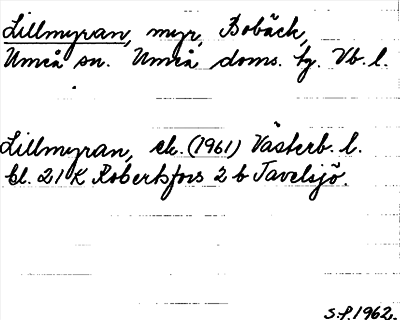 Lillmyran, myr, Bobäck,
Umeå sn. Umeå doms. tg. Vb. l.
Lillmyran, ek. (1961) Västerb. l.
bl. 21 K Robertsfors 2 b Tavelsjö.
S.f. 1962.